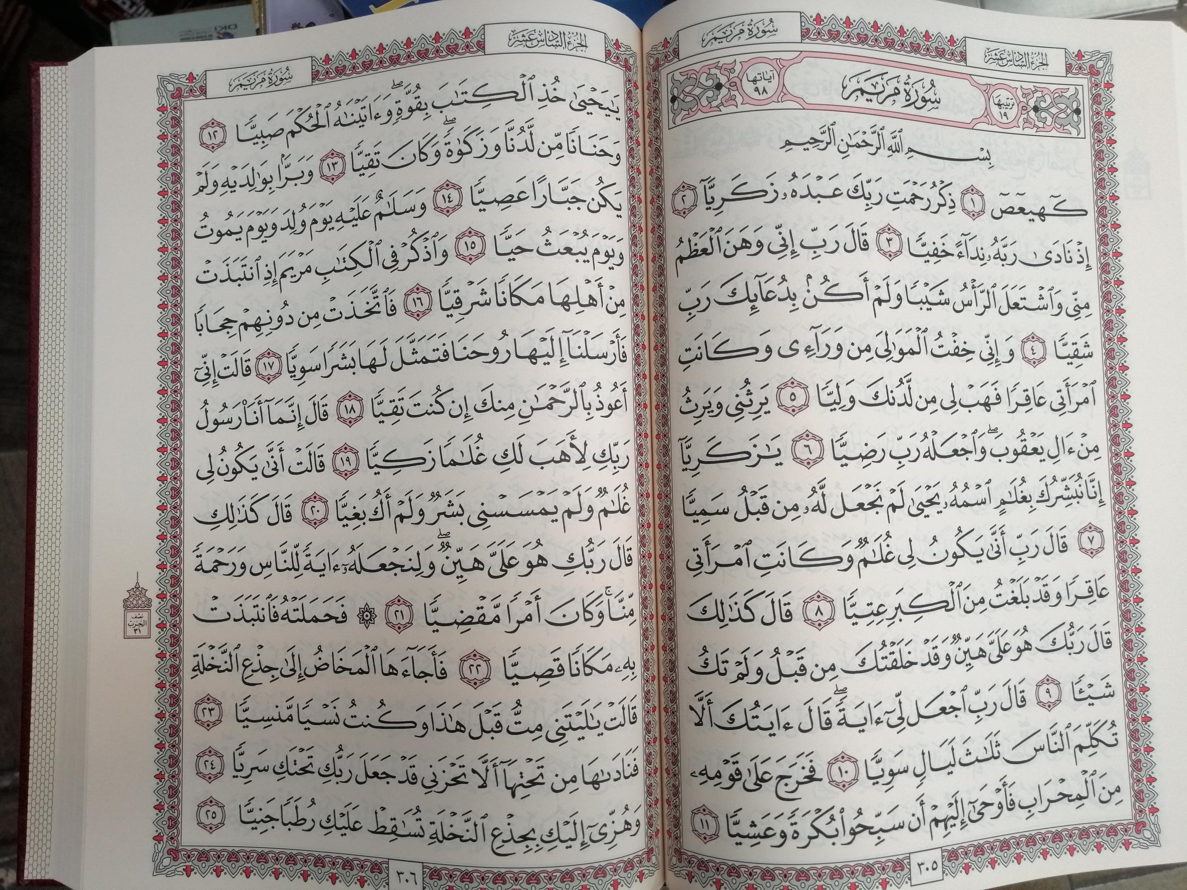 الجزء السادس عشر
سورة مريم
ترتيبها ١٩
سُورَةُ مَرْيَمَ
آياتها ٩٨
بِسْمِ ٱللَّهِ ٱلرَّحْمَٰنِ ٱلرَّحِيمِ
كٓهيعٓصٓ ١ ذِكْرُ رَحْمَتِ رَبِّكَ عَبْدَهُۥ زَكَرِيَّآ ٢
إِذْ نَادَىٰ رَبَّهُۥ نِدَآءً خَفِيًّا ٣ قَالَ رَبِّ إِنِّي وَهَنَ ٱلْعَظْمُ
مِنِّي وَٱشْتَعَلَ ٱلرَّأْسُ شَيْبًا وَلَمْ أَكُنۢ بِدُعَآئِكَ رَبِّ
شَقِيًّا ٤ وَإِنِّي خِفْتُ ٱلْمَوَٰلِيَ مِن وَرَآءِي وَكَانَتِ
ٱمْرَأَتِي عَاقِرًا فَهَبْ لِي مِن لَّدُنكَ وَلِيًّا ٥ يَرِثُنِي وَيَرِثُ
مِنْ ءَالِ يَعْقُوبَۖ وَٱجْعَلْهُ رَبِّ رَضِيًّا ٦ يَٰزَكَرِيَّآ
إِنَّا نُبَشِّرُكَ بِغُلَٰمٍ ٱسْمُهُۥ يَحْيَىٰ لَمْ نَجْعَل لَّهُۥ مِن قَبْلُ سَمِيًّا
٧ قَالَ رَبِّ أَنَّىٰ يَكُونُ لِي غُلَٰمٌ وَكَانَتِ ٱمْرَأَتِي
عَاقِرًا وَقَدْ بَلَغْتُ مِنَ ٱلْكِبَرِ عِتِيًّا ٨ قَالَ كَذَٰلِكَ
قَالَ رَبُّكَ هُوَ عَلَيَّ هَيِّنٌ وَقَدْ خَلَقْتُكَ مِن قَبْلُ وَلَمْ تَكُ
شَيْـًٔا ٩ قَالَ رَبِّ ٱجْعَل لِّيٓ ءَايَةًۖ قَالَ ءَايَتُكَ أَلَّا
تُكَلِّمَ ٱلنَّاسَ ثَلَٰثَ لَيَالٍ سَوِيًّا ١٠ فَخَرَجَ عَلَىٰ قَوْمِهِۦ
مِنَ ٱلْمِحْرَابِ فَأَوْحَىٰٓ إِلَيْهِمْ أَن سَبِّحُوا۟ بُكْرَةً وَعَشِيًّا ١١
٣٠٥
الجزء السادس عشر
سورة مريم
يَٰيَحْيَىٰ خُذِ ٱلْكِتَٰبَ بِقُوَّةٍۖ وَءَاتَيْنَٰهُ ٱلْحُكْمَ صَبِيًّا ١٢
وَحَنَانًا مِّن لَّدُنَّا وَزَكَوٰةًۖ وَكَانَ تَقِيًّا ١٣ وَبَرًّۢا بِوَٰلِدَيْهِ وَلَمْ
يَكُن جَبَّارًا عَصِيًّا ١٤ وَسَلَٰمٌ عَلَيْهِ يَوْمَ وُلِدَ وَيَوْمَ يَمُوتُ
وَيَوْمَ يُبْعَثُ حَيًّا ١٥ وَٱذْكُرْ فِي ٱلْكِتَٰبِ مَرْيَمَ إِذِ ٱنتَبَذَتْ
مِنْ أَهْلِهَا مَكَانًا شَرْقِيًّا ١٦ فَٱتَّخَذَتْ مِن دُونِهِمْ حِجَابًا
فَأَرْسَلْنَآ إِلَيْهَا رُوحَنَا فَتَمَثَّلَ لَهَا بَشَرًا سَوِيًّا ١٧ قَالَتْ إِنِّيٓ
أَعُوذُ بِٱلرَّحْمَٰنِ مِنكَ إِن كُنتَ تَقِيًّا ١٨ قَالَ إِنَّمَآ أَنَا۠ رَسُولُ
رَبِّكِ لِأَهَبَ لَكِ غُلَٰمًا زَكِيًّا ١٩ قَالَتْ أَنَّىٰ يَكُونُ لِي
غُلَٰمٌ وَلَمْ يَمْسَسْنِي بَشَرٌ وَلَمْ أَكُ بَغِيًّا ٢٠ قَالَ كَذَٰلِكِ
قَالَ رَبُّكِ هُوَ عَلَيَّ هَيِّنٌۖ وَلِنَجْعَلَهُۥٓ ءَايَةً لِّلنَّاسِ وَرَحْمَةً
مِّنَّاۚ وَكَانَ أَمْرًا مَّقْضِيًّا ٢١ ۞ فَحَمَلَتْهُ فَٱنتَبَذَتْ
بِهِۦ مَكَانًا قَصِيًّا ٢٢ فَأَجَآءَهَا ٱلْمَخَاضُ إِلَىٰ جِذْعِ ٱلنَّخْلَةِ
قَالَتْ يَٰلَيْتَنِي مِتُّ قَبْلَ هَٰذَا وَكُنتُ نَسْيًا مَّنسِيًّا ٢٣
فَنَادَىٰهَا مِن تَحْتِهَآ أَلَّا تَحْزَنِي قَدْ جَعَلَ رَبُّكِ تَحْتَكِ سَرِيًّا ٢٤
وَهُزِّيٓ إِلَيْكِ بِجِذْعِ ٱلنَّخْلَةِ تُسَٰقِطْ عَلَيْكِ رُطَبًا جَنِيًّا ٢٥
نصف
الحزب
٣١
٣٠٦